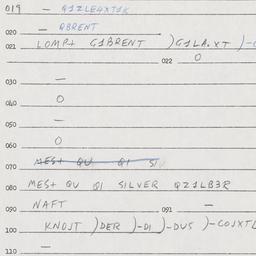 019 — Q1ZLE4XT1K
020 — QBRENT
021 LOMP+ G1BRENT )G1LA.XT )-
022 O
030 —
040 O
050 —
060 O
070 MES+ QU QI SI
080 MES+ QV QI SILVER QZ1LB3R
090 NAFT 091 —
100 KNOJT )DER )-DI )-DUS )-COJXTL
110 —